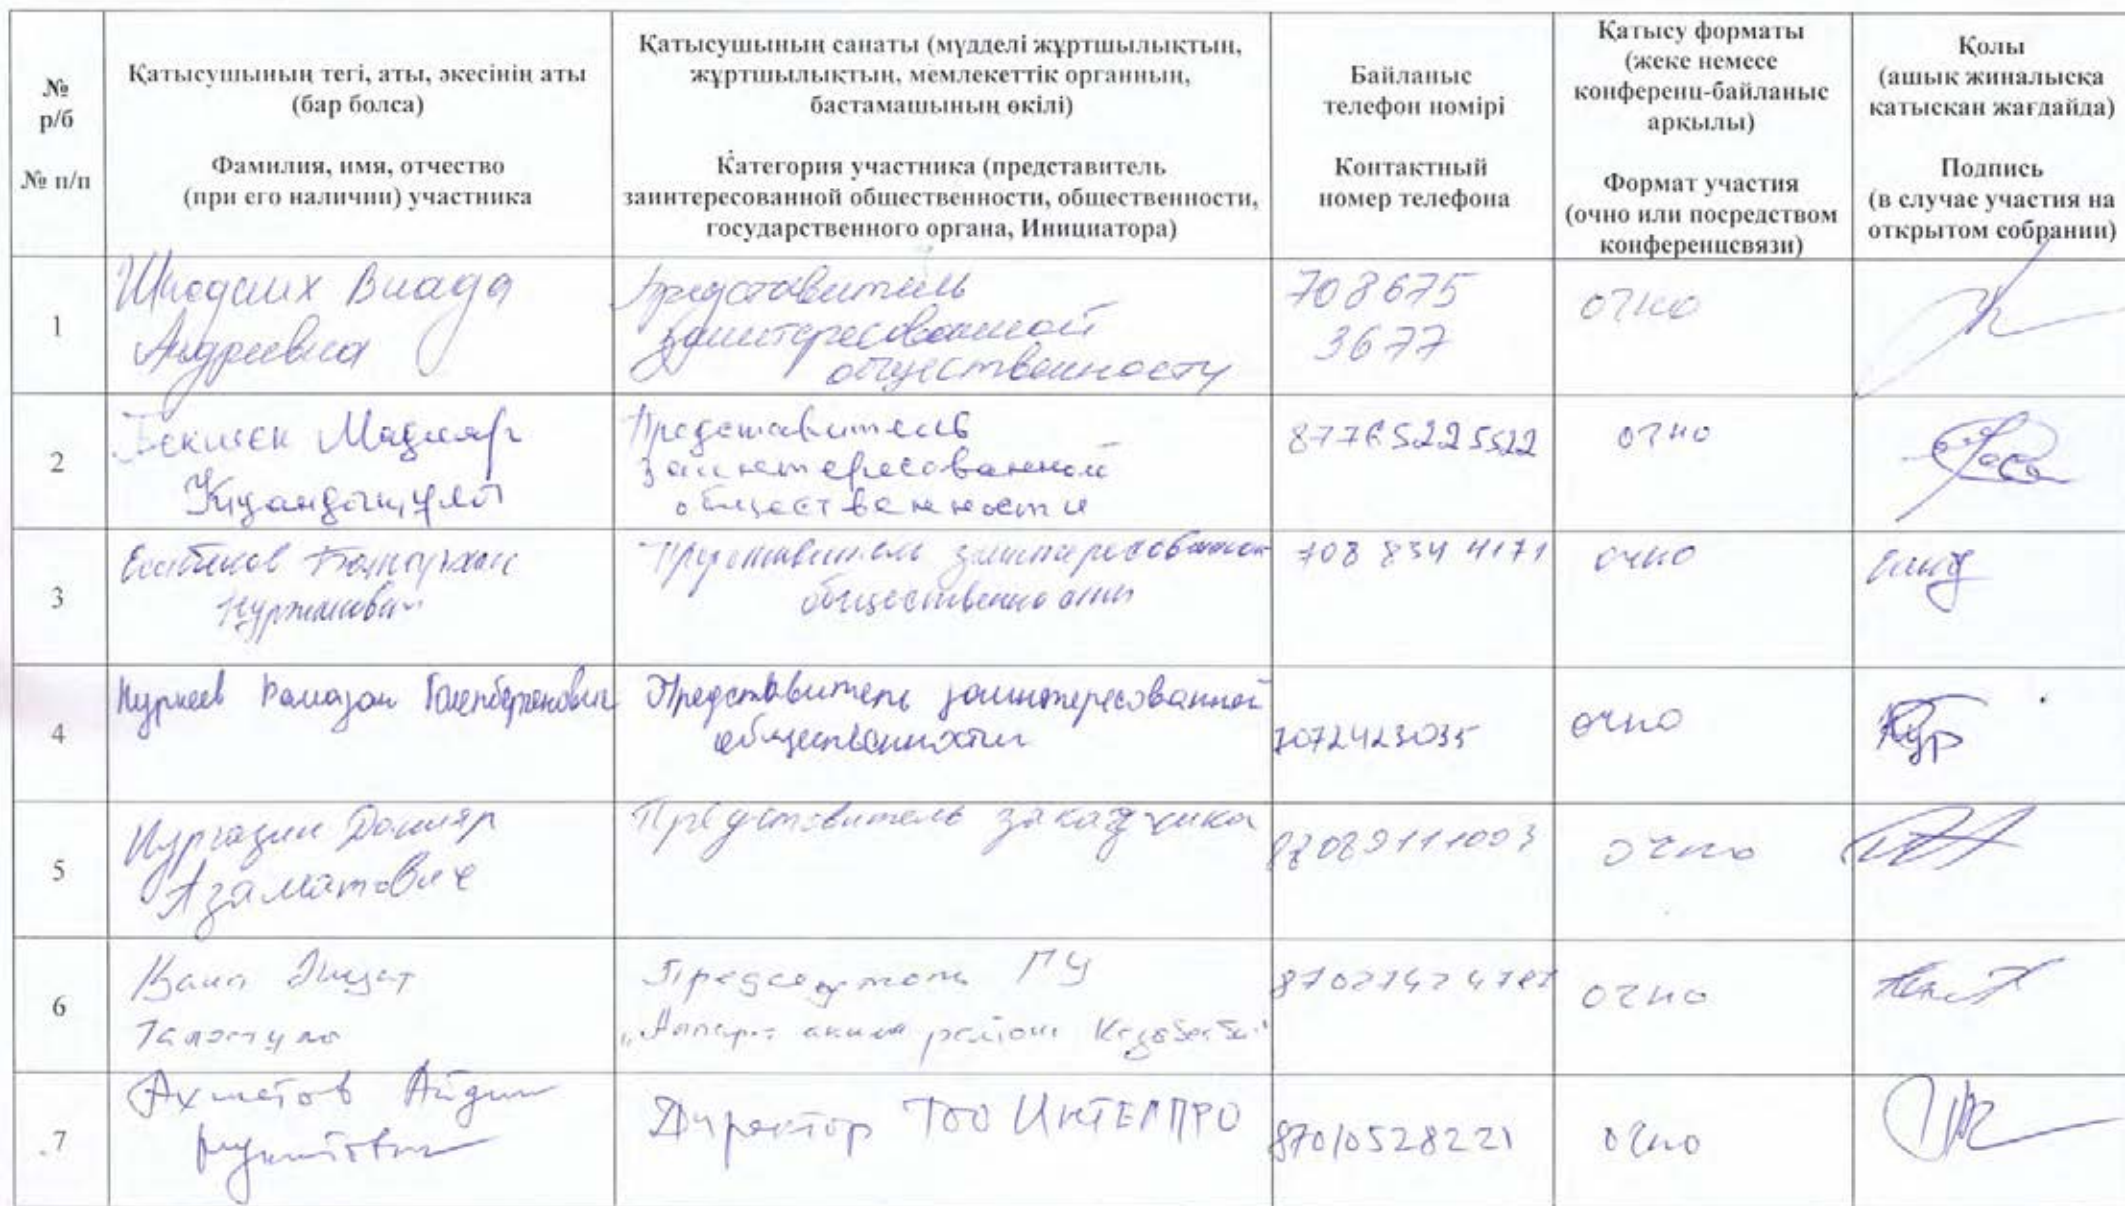 №
р/б
№ п/п
Қатысушының тегі, аты, әкесінің аты
(бар болса)
Фамилия, имя, отчество
(при его наличии) участника
Қатысушының санаты (мүдделі жұртшылықтың,
жұртшылықтың, мемлекеттік органның,
бастамашының өкілі)
Категория участника (представитель
заинтересованной общественности, общественности,
государственного органа, Инициатора)
Байланыс
телефон номірі
Контактный
номер телефона
Қатысу форматы
(жеке немесе
конференц-байланыс
арқылы)
Формат участия
(очно или посредством
конференцсвязи)
Қолы
(ашық жиналысқа
қатысқан жағдайда)
Подпись
(в случае участия на
открытом собрании)
1
Влада
Андреевна
Представитель
заинтересованной
общественности
708675
3677
очно
2
Мадияр
Представитель
заинтересованной
общественности
87765225522
очно
3
Представитель заинтересованной
общественности
708 834 4171
очно
4
Нуркеев Рамазан
Представитель заинтересованной
общественности
7072423035
очно
5
Нургазин Данияр
Азаматович
Представитель заказчика
87089111003
очно
6
ГУ
очно
7
Ахметов Айдын
Директор ТОО ИНТЕЛПРО
87010528221
очно